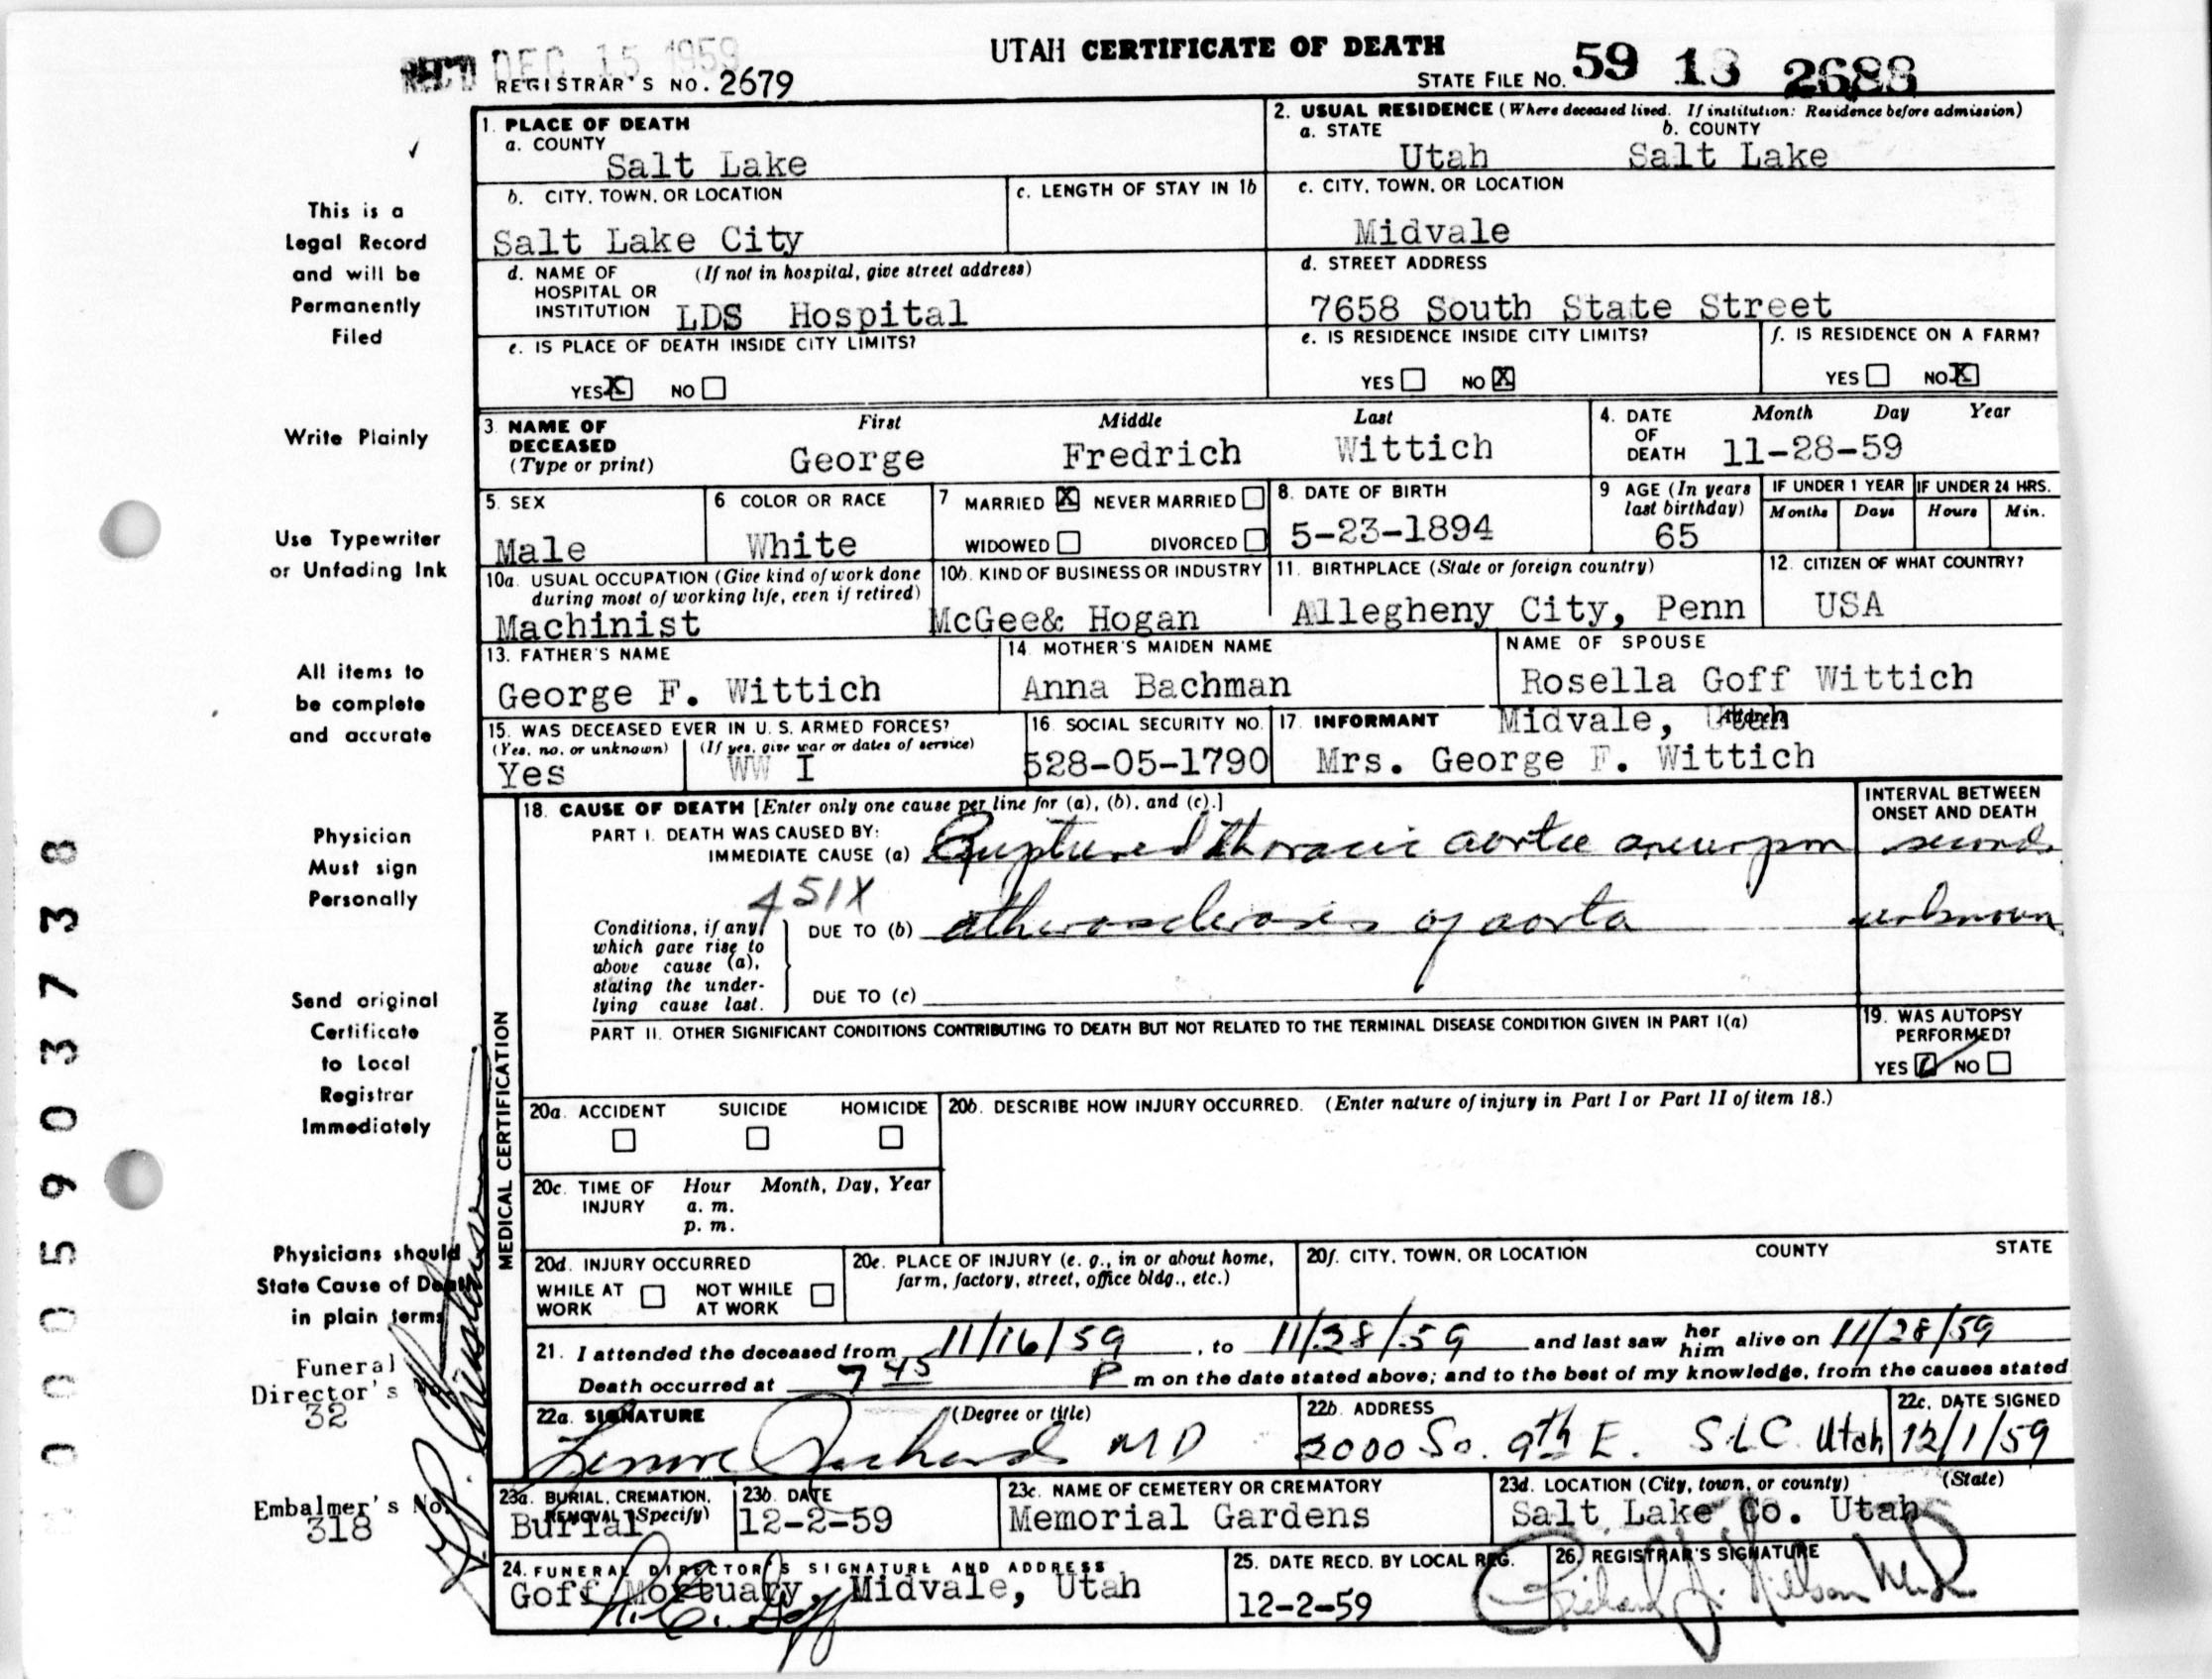 UTAH CERTIFICATE OF DEATH
REC'D DEC 15 1959
REGISTRAR'S NO. 2679
STATE FILE NO. 59 18 2688
1. PLACE OF DEATH
a. COUNTY
Salt Lake
2. USUAL RESIDENCE (Where deceased lived. If institution: Residence before admission)
a. STATE b. COUNTY
Utah Salt Lake
b. CITY, TOWN, OR LOCATION
Salt Lake City
c. LENGTH OF STAY IN 1b
c. CITY, TOWN, OR LOCATION
Midvale
d. NAME OF HOSPITAL OR INSTITUTION (If not in hospital, give street address)
LDS Hospital
d. STREET ADDRESS
7658 South State Street
e. IS PLACE OF DEATH INSIDE CITY LIMITS?
YES X NO
e. IS RESIDENCE INSIDE CITY LIMITS?
YES NO X
f. IS RESIDENCE ON A FARM?
YES NO X
3. NAME OF DECEASED (Type or print)
First Middle Last
George Fredrich Wittich
4. DATE OF DEATH Month Day Year
11-28-59
5. SEX
Male
6 COLOR OR RACE
White
7 MARRIED X NEVER MARRIED
WIDOWED DIVORCED
8. DATE OF BIRTH
5-23-1894
9 AGE (In years last birthday)
65
IF UNDER 1 YEAR
Months Days
IF UNDER 24 HRS.
Hours Min.
10a. USUAL OCCUPATION (Give kind of work done during most of working life, even if retired)
Machinist
10b. KIND OF BUSINESS OR INDUSTRY
McGee& Hogan
11. BIRTHPLACE (State or foreign country)
Allegheny City, Penn
12. CITIZEN OF WHAT COUNTRY?
USA
13. FATHER'S NAME
George F. Wittich
14. MOTHER'S MAIDEN NAME
Anna Bachman
NAME OF SPOUSE
Rosella Goff Wittich
15. WAS DECEASED EVER IN U. S. ARMED FORCES?
(Yes, no, or unknown) (If yes, give war or dates of service)
Yes WW I
16. SOCIAL SECURITY NO.
528-05-1790
17. INFORMANT Address
Midvale, Utah
Mrs. George F. Wittich
MEDICAL CERTIFICATION
18. CAUSE OF DEATH [Enter only one cause per line for (a), (b), and (c).]
INTERVAL BETWEEN ONSET AND DEATH
PART I. DEATH WAS CAUSED BY:
IMMEDIATE CAUSE (a) Ruptured thoracic aortic aneurysm seconds
451X
Conditions, if any, which gave rise to above cause (a), stating the underlying cause last.
DUE TO (b) atherosclerosis of aorta unknown
DUE TO (c)
PART II. OTHER SIGNIFICANT CONDITIONS CONTRIBUTING TO DEATH BUT NOT RELATED TO THE TERMINAL DISEASE CONDITION GIVEN IN PART I(a)
19. WAS AUTOPSY PERFORMED?
YES NO
20a. ACCIDENT SUICIDE HOMICIDE
20b. DESCRIBE HOW INJURY OCCURRED. (Enter nature of injury in Part I or Part II of item 18.)
20c. TIME OF INJURY Hour Month, Day, Year
a. m.
p. m.
20d. INJURY OCCURRED
WHILE AT WORK NOT WHILE AT WORK
20e. PLACE OF INJURY (e. g., in or about home, farm, factory, street, office bldg., etc.)
20f. CITY, TOWN, OR LOCATION COUNTY STATE
21. I attended the deceased from 11/16/59, to 11/28/59 and last saw her him alive on 11/28/59
Death occurred at 7 45 P m on the date stated above; and to the best of my knowledge, from the causes stated
22a. SIGNATURE (Degree or title)
MD
22b. ADDRESS
2000 So. 9th E. SLC Utah
22c. DATE SIGNED
12/1/59
23a. BURIAL, CREMATION, REMOVAL (Specify)
Burial
23b. DATE
12-2-59
23c. NAME OF CEMETERY OR CREMATORY
Memorial Gardens
23d. LOCATION (City, town, or county) (State)
Salt Lake Co. Utah
24. FUNERAL DIRECTOR'S SIGNATURE AND ADDRESS
Goff Mortuary, Midvale, Utah
25. DATE RECD. BY LOCAL REG.
12-2-59
26. REGISTRAR'S SIGNATURE
This is a
Legal Record
and will be
Permanently
Filed
Write Plainly
Use Typewriter
or Unfading Ink
All items to
be complete
and accurate
Physician
Must sign
Personally
Send original
Certificate
to Local
Registrar
Immediately
Physicians should
State Cause of Death
in plain terms
Funeral
Director's No.
32
Embalmer's No.
318
005903738